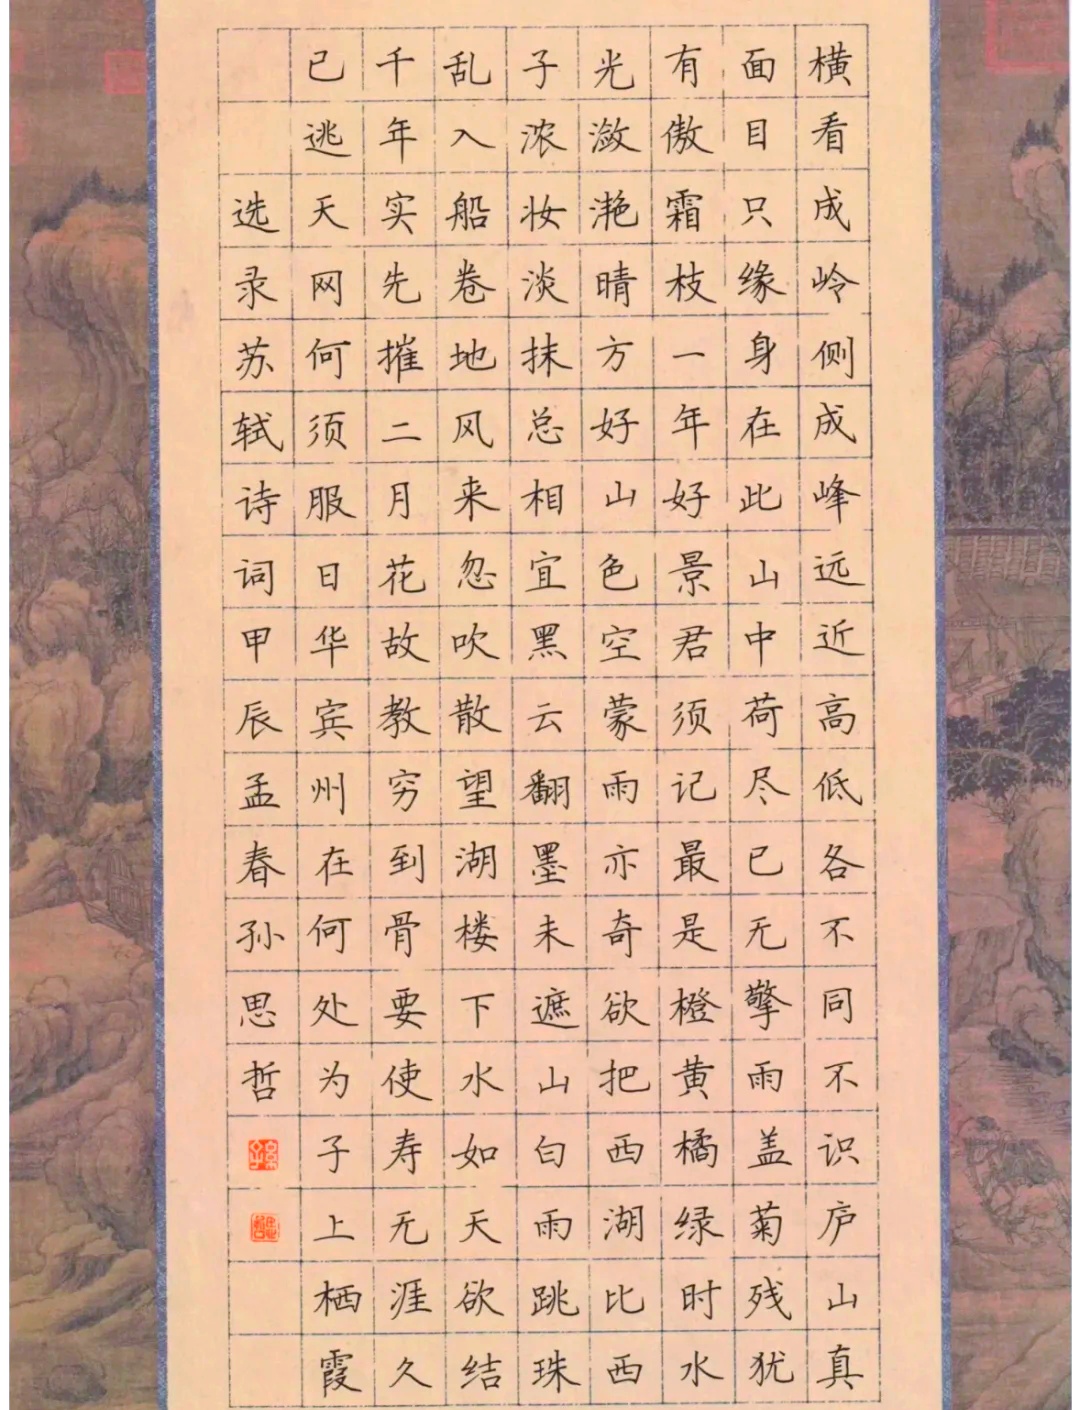 横看成岭侧成峰远近高低各不同不识庐山真
面目只缘身在此山中荷尽已无擎雨盖菊残犹
有傲霜枝一年好景君须记最是橙黄橘绿时水
光潋滟晴方好山色空蒙雨亦奇欲把西湖比西
子浓妆淡抹总相宜黑云翻墨未遮山白雨跳珠
乱入船卷地风来忽吹散望湖楼下水如天欲结
千年实先摧二月花故教穷到骨要使寿无涯久
已逃天网何须服日华宾州在何处为子上栖霞
选录苏轼诗词甲辰孟春孙思哲